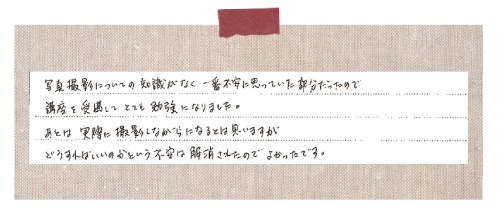 写真撮影についての知識がなく一番不安に思っていた部分だったので
講座を受講してとても勉強になりました。
あとは実際に撮影しながらになるとは思いますが
どうすればいいのかという不安は解消されたのでよかったです。